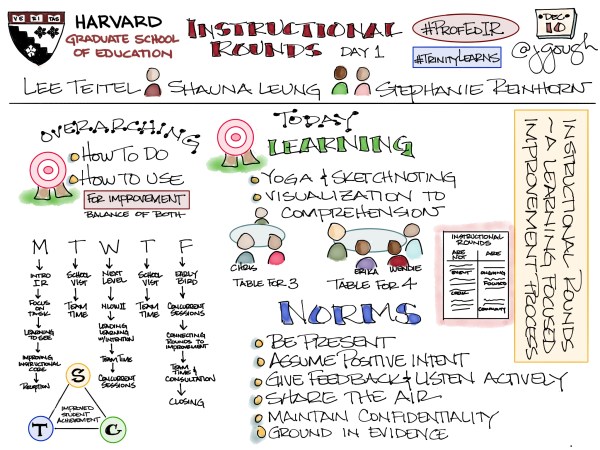 VE RI TAS
HARVARD
GRADUATE SCHOOL
OF EDUCATION
INSTRUCTIONAL
ROUNDS DAY 1
#PROFEDIR
#TRINITYLEARNS
DEC
10
@jgough
LEE TEITEL SHAUNA LEUNG STEPHANIE REINHORN
OVERARCHING
HOW TO DO
HOW TO USE
FOR IMPROVEMENT
BALANCE OF BOTH
TODAY
LEARNING
YOGA & SKETCHNOTING
VISUALIZATION TO
COMPREHENSION
CHRIS
TABLE FOR 3
ERIKA WENDIE
TABLE FOR 4
INSTRUCTIONAL
ROUNDS
ARE NOT
ARE
EVENT
ONGOING
FOCUSED
COMMUNITY
INSTRUCTIONAL ROUNDS
~ A LEARNING FOCUSED
IMPROVEMENT PROCESS
M T W T F
INTRO
IR
FOCUS
ON
TASK
LEARNING
TO SEE
IMPROVING
INSTRUCTIONAL
CORE
RECEPTION
SCHOOL
VISIT
TEAM TIME
NEXT
LEVEL
LEADING
LEARNING
W/INTENTION
TEAM TIME
CONCURRENT
SESSIONS
SCHOOL
VISIT
TEAM TIME
EARLY
BIRD
CONCURRENT
SESSIONS
CONNECTING
ROUNDS TO
IMPROVEMENT
TEAM
TIME &
CONSULTATION
CLOSING
S
IMPROVED
STUDENT
ACHIEVEMENT
T
C
NORMS
BE PRESENT
ASSUME POSITIVE INTENT
GIVE FEEDBACK & LISTEN ACTIVELY
SHARE THE AIR
MAINTAIN CONFIDENTIALITY
GROUND IN EVIDENCE